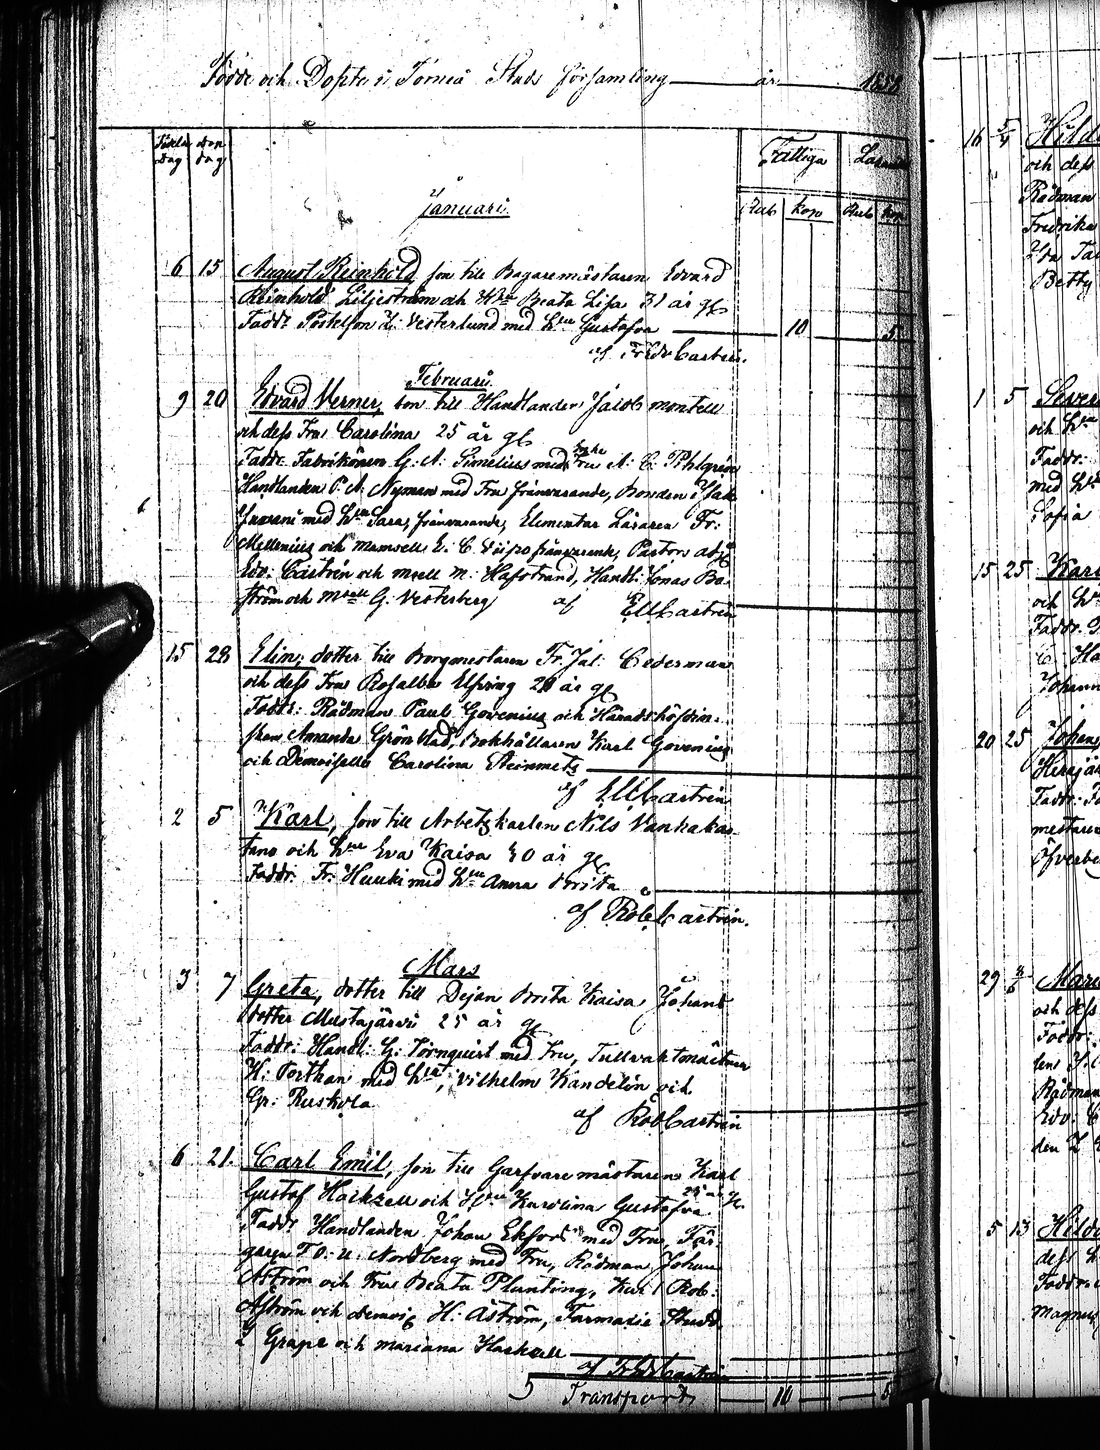 Födde och Döpte i Torneå Stads församling år 1858
Födelse Dag Döp dag
Fattiga Lasarett
Rub kop Rub kop
Januari
6 15 August Reinhold son till Bagaremästaren Edvard
Reinhold Liljeström och H:n Beata Lisa 31 år gl
Faddr: Posteljon Z: Vesterlund med h:u Gustafva 10 5
af Fr: Edv: Castrén.
Februari
9 20 Edvard Verner, son till Handlanden Jakob Montell
och dess Fru Carolina 25 år gl
Faddr. Fabrikören G. A. Simelius med Fru A. C. Pihlgren
Handlanden P. A. Nyman med Fru frånvarande, Bonden Isak
Juusani med h:u Sara, frånvarande, Elementar Läraren Fr:
Mellenius och mamsell E. C. frånvarande, Pastors adj:
Edv: Castrén och msell M: Hafstrand, Handl: Jonas Bo-
ström och Msell G. Vesterberg af Castrén
15 28 Elin, dotter till Borgmestaren Fr. Jul: Cederman
och dess Fru Rosalba Elfving 28 år gl
Faddr: Rådman Paul Govenius och Häradshöfdin-
skan Amanda Grönblad, Bokhållaren Karl Govenius
och Demoiselle Carolina Steinmetz
af Castrén
2 5 Karl, son till Arbetskarlen Nils Vanhakar-
tano och h:u Eva Kaisa 30 år gl
Faddr: Fr. Huuki med h:u Anna Brita
af Rob Castrén.
Mars
3 7 Greta, dotter till Dejan Brita Kaisa Johans
dotter Mustajärvi 25 år gl
Faddr: Handl: G: Törnquist med Fru, Tullvaktmästaren
H: Porthan med h:u, Vilhelm Kandelin och
Gr: Ruskola
af Rob Castrén
6 21. Carl Emil, son till Garfvaremästaren Karl
Gustaf Hackzell och H:u Karolina Gustafva 29 år gl.
Faddr Handlanden Johan Ekfors med Fru, Fär-
garen F O: u: Nordberg med Fru, Rådman Johan
Åström och Fru Beata Planting, Karl Rob:
Åström och Demois H: Åström, Farmacie Stud.
Grape och Mariana Hackzell
af Fr Edv Castrén
5 Transport 10 5
16 5/4 Hild
och dess
Rådman
Fredrika
Betty
1 5 Sever
och h:u
Faddr:
med h:u
Sofia
15 25 Karl
och h:u
Faddr.
Johann
20 25 Johan
Faddr:
mestaren
Öfverbe
29 Mari
och dess
Faddr:
Rådman
Edv: C
den Z
5 13 Hild
dess h
Faddr:
Magnus